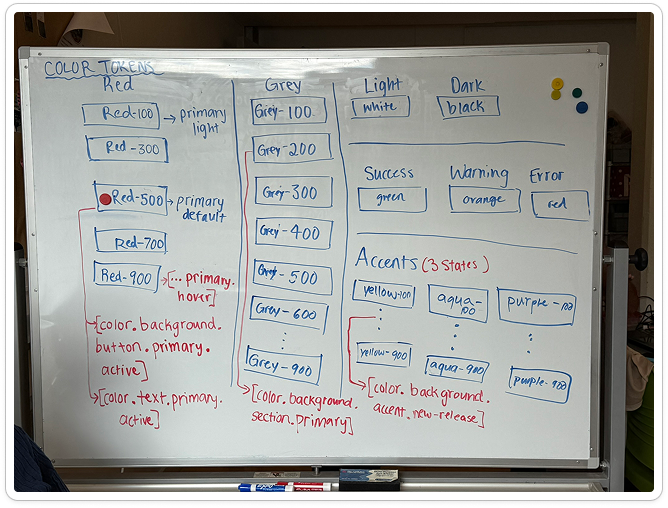 COLOR TOKENS
Red
Red-100 → primary light
Red-300
Red-500 → primary default
Red-700
Red-900 → [... primary.
hover]
[color.background.
button.primary.
active]
[color.text.primary.
active]
Grey
Grey-100
Grey-200
Grey-300
Grey-400
Grey-500
Grey-600
Grey-900
[color.background.
section.primary]
Light Dark
white black
Success Warning Error
green orange red
Accents (3 States)
yellow-100 aqua-100 purple-100
yellow-900 aqua-900 purple-900
[color.background.
accent.new-release]